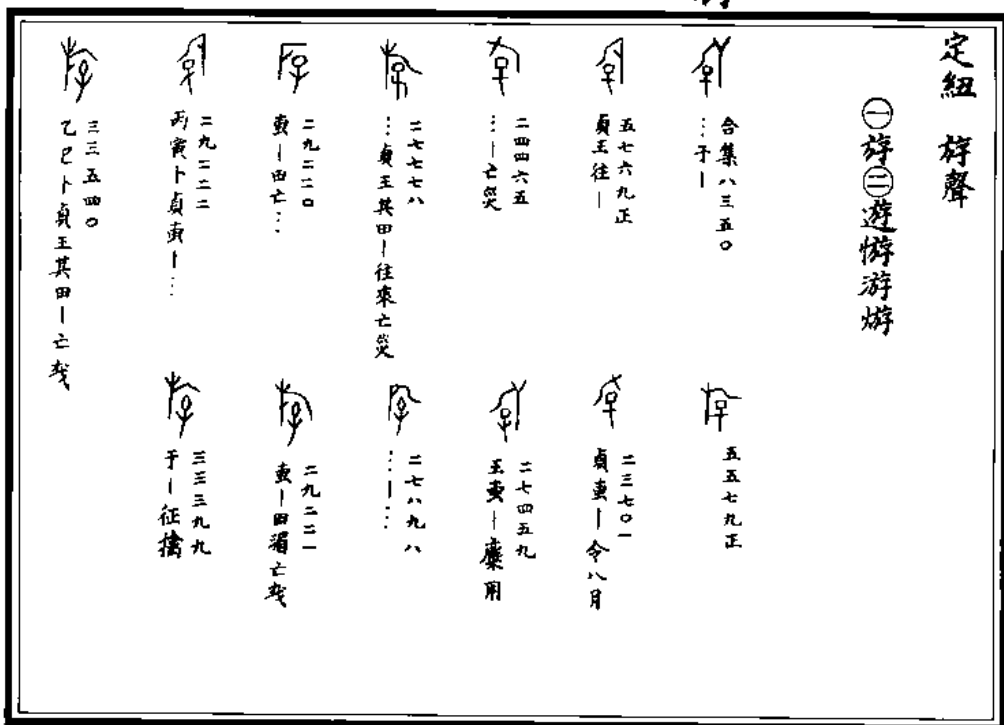 定紐 斿聲
㊀斿㊁遊游
合集八三五〇
…于—
五五七九正
五七六九正
貞王往—
二三七〇一
貞叀—令八月
二四四六五
…—亡災
二七四五九
王叀—麋用
二七七七八
…貞王其田—往來亡災
二七八九八
…—…
二九二二〇
叀—田亡…
二九二二一
叀—田湄亡𢦏
二九二二二
丙寅卜貞叀—…
三三三九九
于—征擒
三三五四〇
乙巳卜貞王其田—亡𢦏